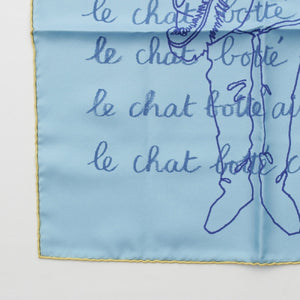 le chat botté
le chat botté
le chat botté au
le chat botté c